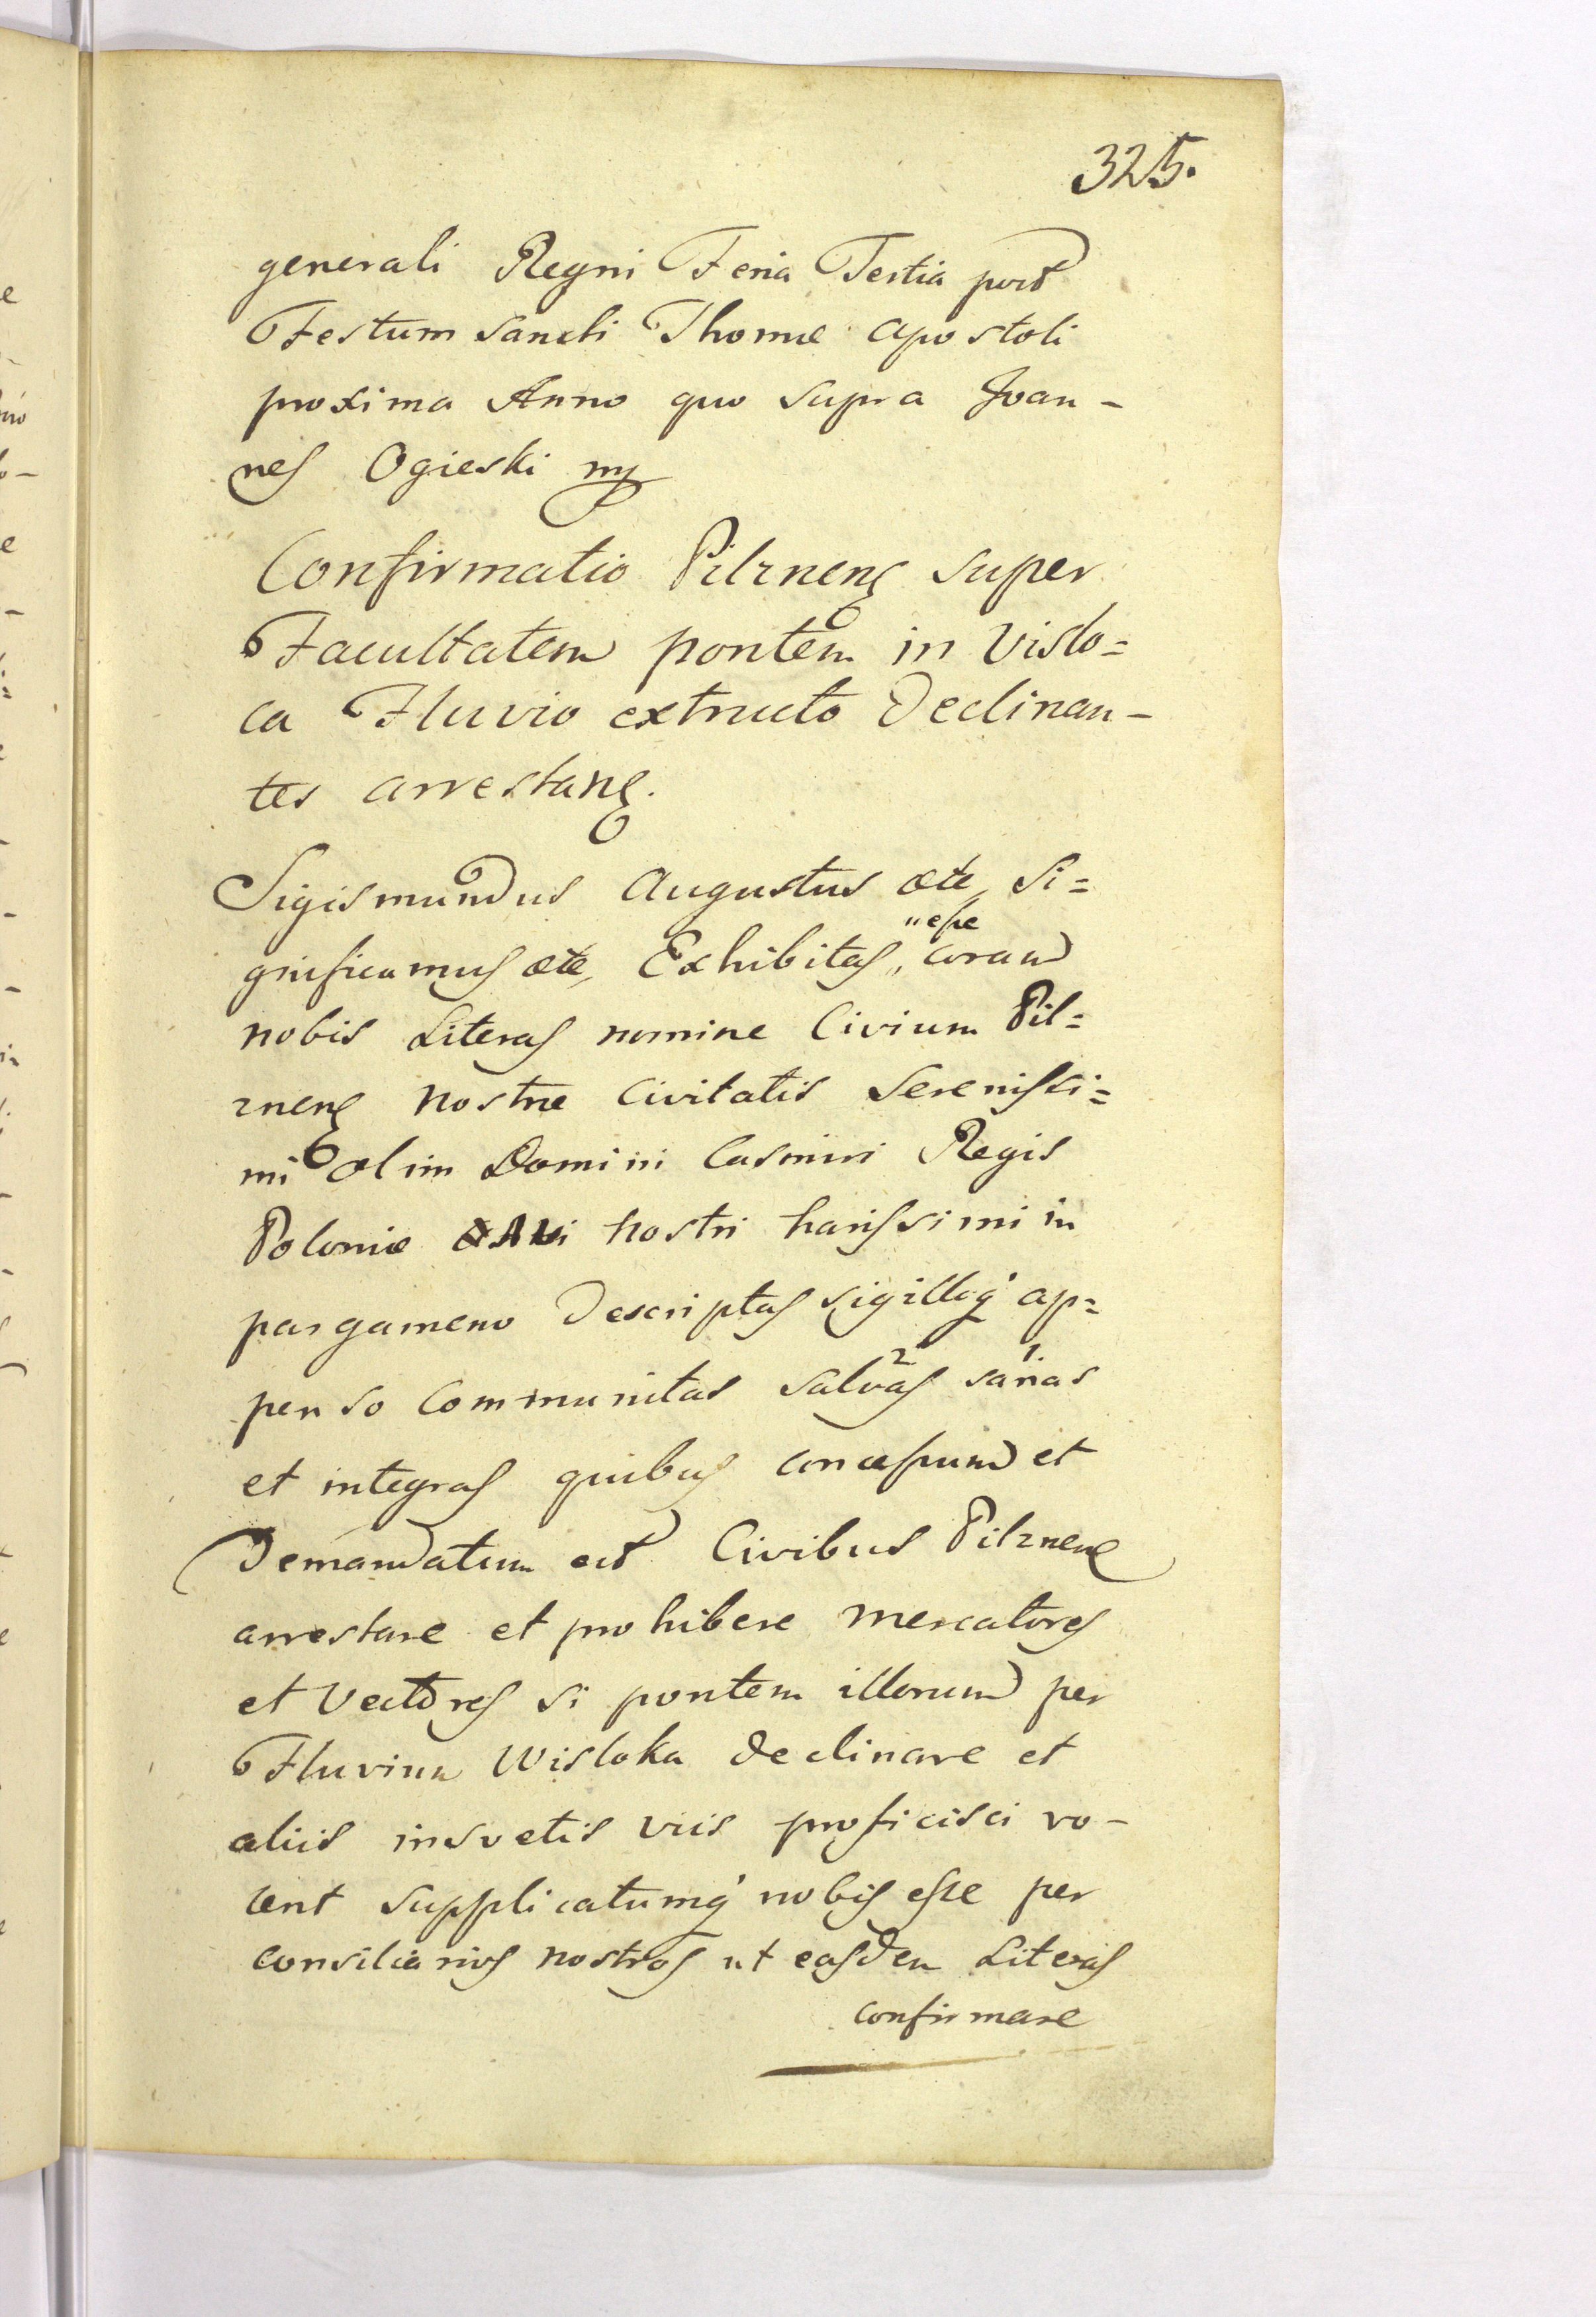 325.
generali Regni Feria Tertia post
Festum Sancti Thomæ Apostoli
proxima Anno quo supra Joan-
nes Ogieski mp
Confirmatio Pilznens super
Facultatem pontem in Visło=
ca Fluvio extructo Declinan-
tes arrestans.
Sigismundus Augustus etc, Si=
gnificamus etc, Exhibitas „esse coram
nobis Literas nomine Civium Pil=
znens nostræ Civitatis Serenissi=
mi olim Domini Casmiri Regis
Poloniæ Avi nostri harissimi in
pargameno Descriptas sigilloq' ap=
penso communitas salvas 2 sanas 1.
et integras quibus concessum et
Demandatum est Civibus Pilznens
arrestare et prohibere mercatores
et Vectores si pontem illorum per
Fluvium Wisloka declinare et
aliis insvetis viis proficisci vo-
lent supplicatumq' nobis esse per
consiliarios nostros ut easdem Literas
confirmare